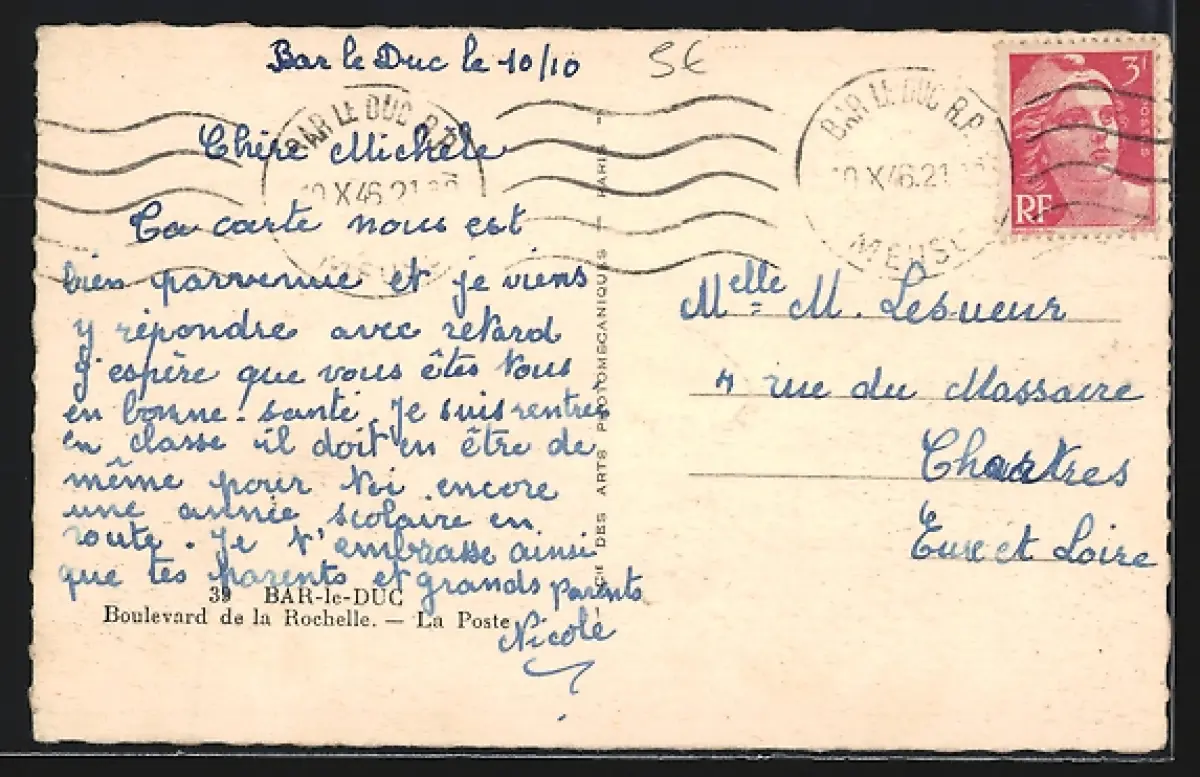 Bar le Duc le 10/10
5€
BAR LE DUC R.P.
10 X 46.21
Chère Michèle
Ta carte nous est
bien parvenue et je viens
y répondre avec retard
J'espère que vous êtes tous
en bonne santé. Je suis rentrée
en classe il doit en être de
même pour toi. encore
une année scolaire en
route. Je t'embrasse ainsi
que tes parents et grands parents
Nicole
39 BAR-le-DUC
Boulevard de la Rochelle. — La Poste
CIE DES ARTS PHOTOMÉCANIQUES — PARIS
BAR LE DUC R.P.
10 X 46.21
MEUSE
3F
RF
Melle M. Lesueur
rue du Massacre
Chartres
Eure et Loire